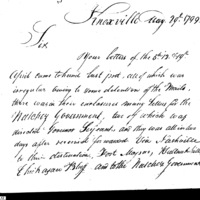 Knoxville Aug 29th, 1799
Sir
Your letters of the 5th 12th & 19th
April came to hand last post, all of which was
irregular owing to some detention of the Mails,
there were in their enclosures many letters for the
Natchez Government, two of which was
directed Governor Serjeant, and they was all in ten
days after received forwarded Via Nashville
to their destination, Fort Mayson,
Chickasaw Bluff and to the Natchez Government